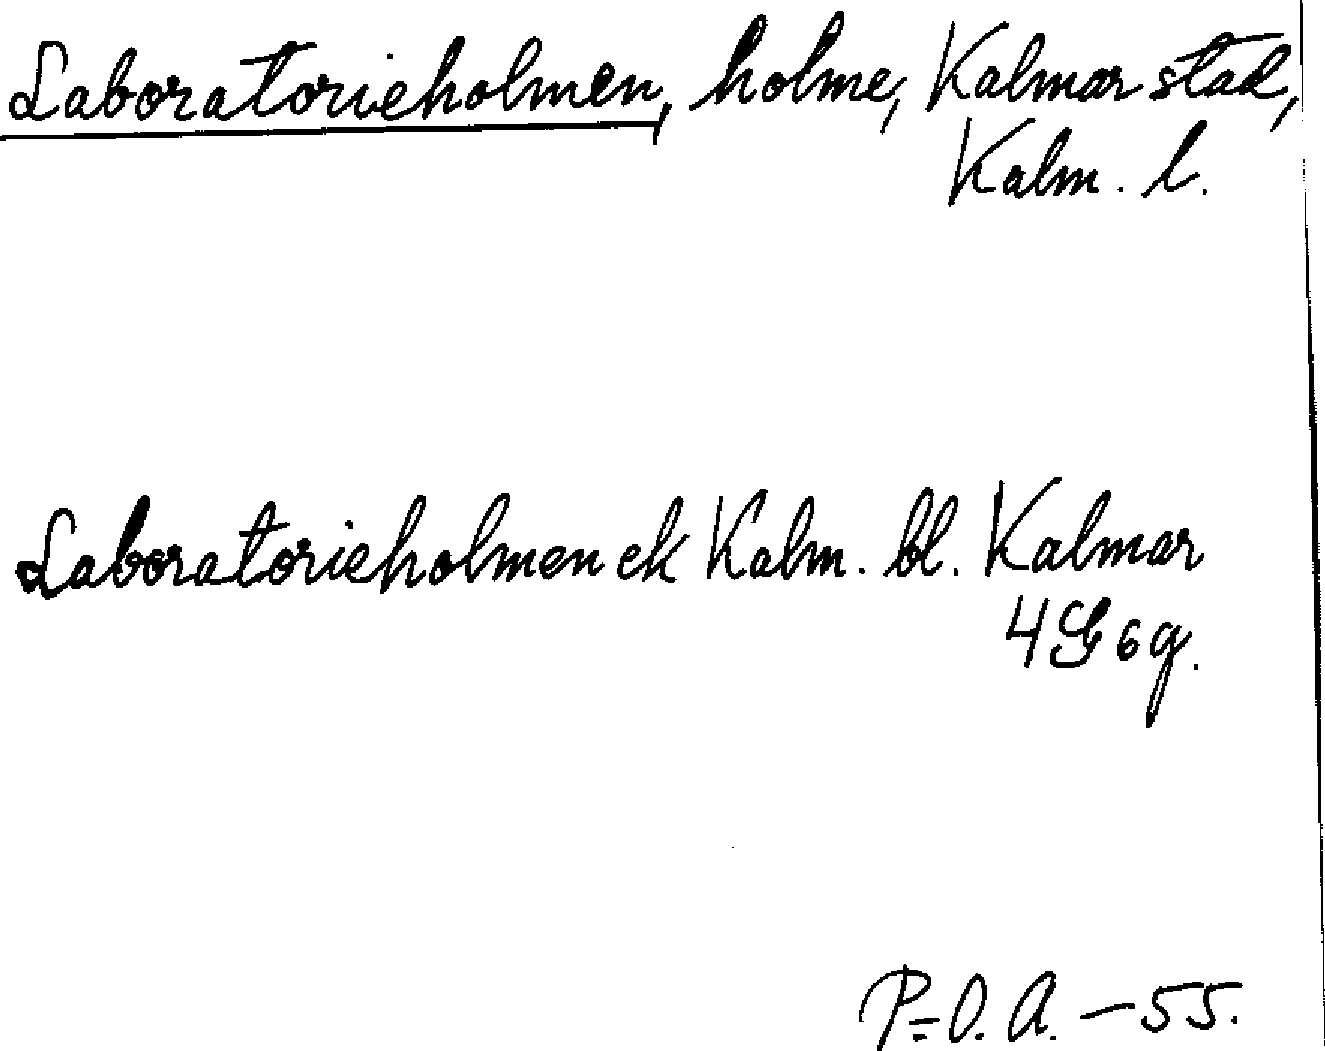 Laboratorieholmen, holme, Kalmar stad,
Kalm. l.
Laboratorieholmen ek Kalm. bl. Kalmar
4G6g.
P=O. A. - 55.